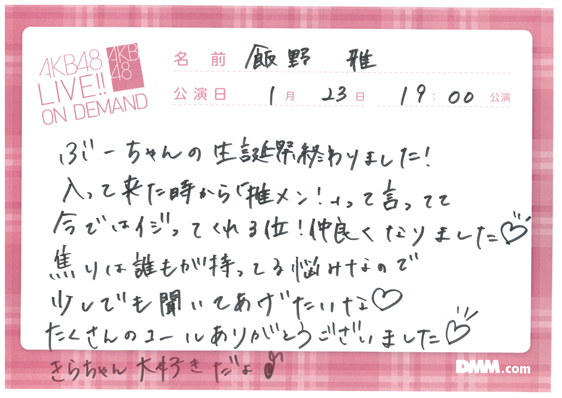 AKB48
LIVE!!
ON DEMAND
AKB
48
名前 飯野 雅
公演日 1月 23日 19:00 公演
ぶーちゃんの生誕祭終わりました!
入って来た時から「推メン!」って言ってて
今ではイジってくれる位!仲良くなりました♡
焦りは誰もが持ってる悩みなので
少しでも聞いてあげたいな♡
たくさんのコールありがとうございました♡
きらちゃん大好きだよ♪
DMM.com